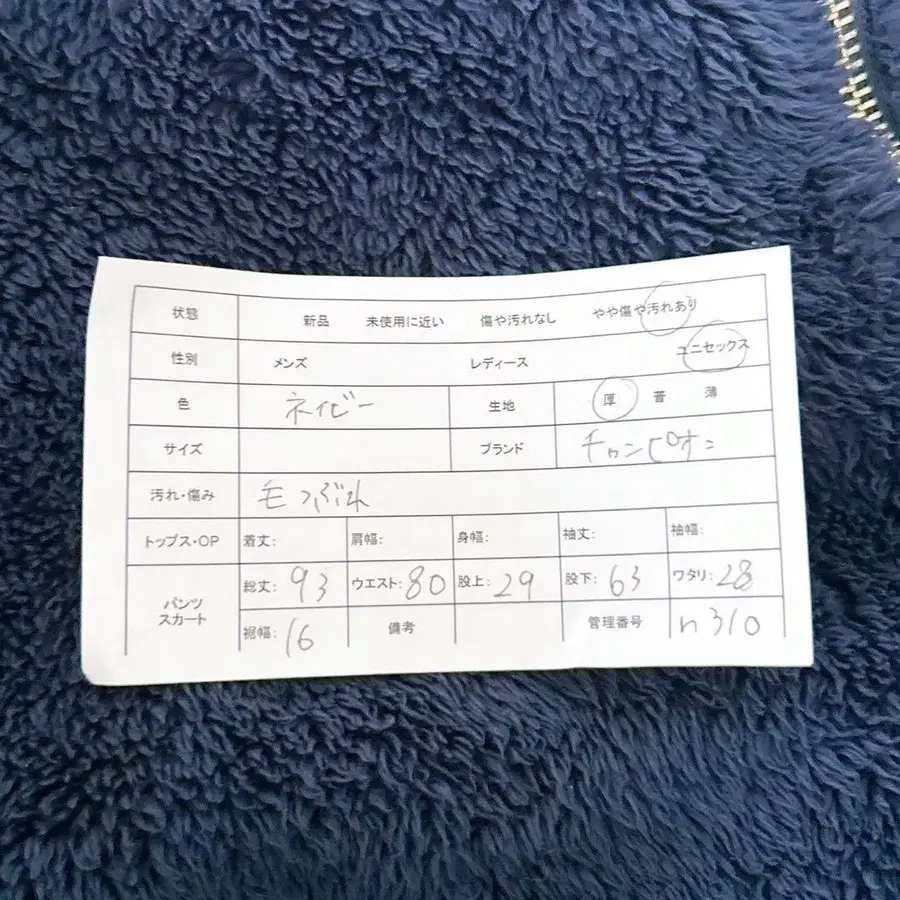 状態 新品 未使用に近い 傷や汚れなし やや傷や汚れあり
性別 メンズ レディース ユニセックス
色 ネイビー 生地 厚 普 薄
サイズ ブランド チャンピオン
汚れ・傷み 毛つぶれ
トップス・OP 着丈: 肩幅: 身幅: 袖丈: 袖幅:
パンツ スカート 総丈: 93 ウエスト: 80 股上: 29 股下: 63 ワタリ: 28
裾幅: 16 備考 管理番号 n310